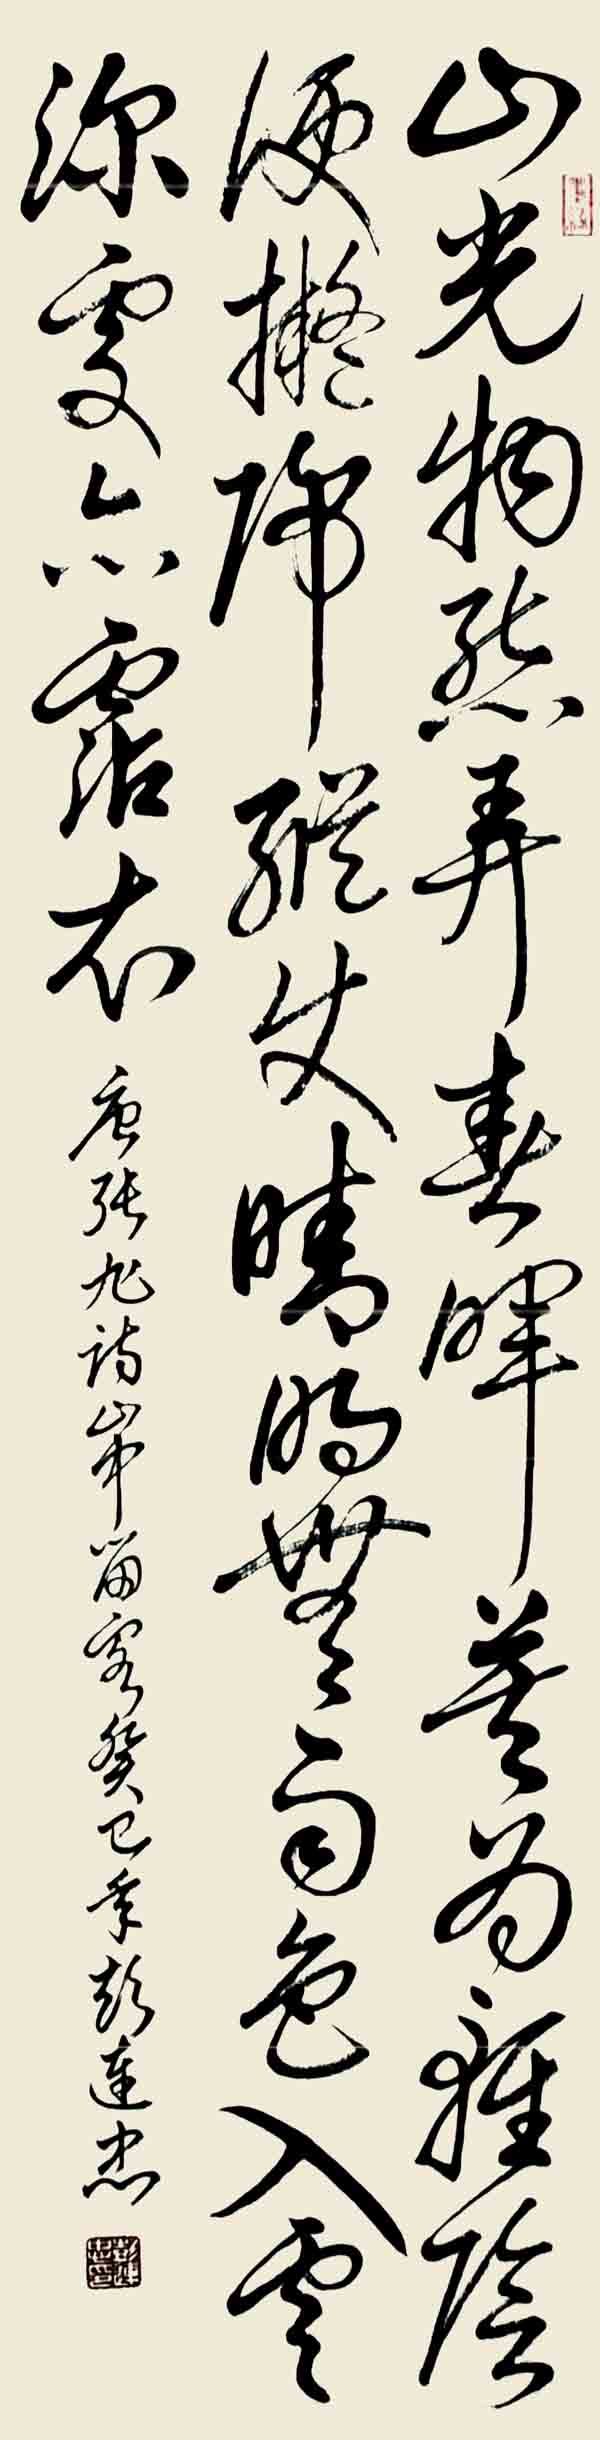 山光物態弄春暉莫為輕陰
便擬歸縱使晴明無雨色入雲
深處亦霑衣 唐張旭詩山中留客癸巳年彭連忠